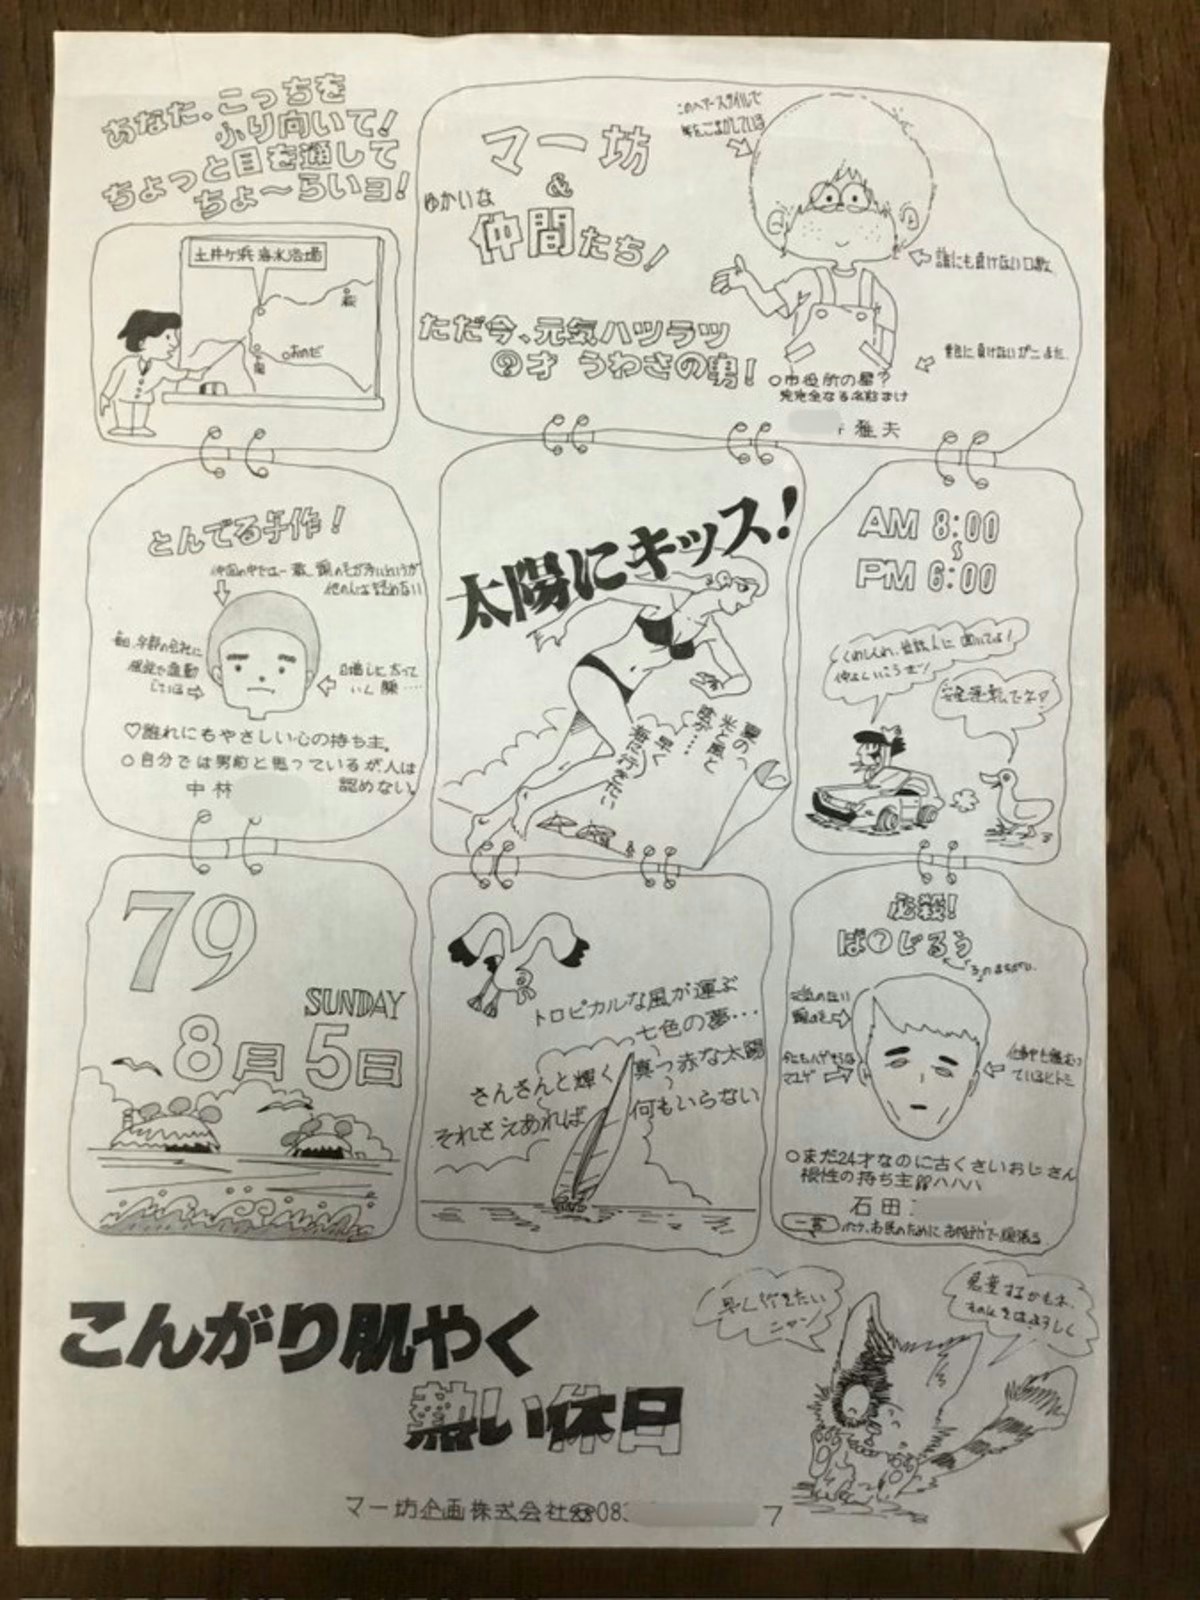 あなた、こっちを
ふり向いて!
ちょっと目を通して
ちょ〜らいヨ!
土井ヶ浜海水浴場
萩
おのだ
マー坊
&
ゆかいな
仲間たち!
ただ今、元気ハツラツ
?才 うわさの男!
このヘアースタイルで
年をごまかしている
誰にも負けない口数
○市役所の星?
完全なる名前まけ
雅夫
とんでる手作!
仲間の中では一番、頭の毛が多いというが
他の人は認めない
毎日、宇部の会社に
通勤
している
日増しに太って
いく顔……
♡誰れにもやさしい心の持ち主。
○自分では男前と思っているが、人は
認めない。
中林
太陽にキッス!
夏の、
光と風と
波が……
早く
海に行きたい
AM 8:00
〜
PM 6:00
仲よくいこうぜ!
安全運転でネ?
79
SUNDAY
8月 5日
トロピカルな風が運ぶ
七色の夢…
さんさんと輝く
真っ赤な太陽
それさえあれば
何もいらない
必殺!
ば?じるう
元気のない
頭の毛
今にもハゲそうな
マユゲ
○まだ24才なのに古くさいおじさん
根性の持ち主!!ハハハ
石田
一言
こんがり肌やく
熱い休日
早く行きたい
ニャン
マー坊企画株式会社☎08
7